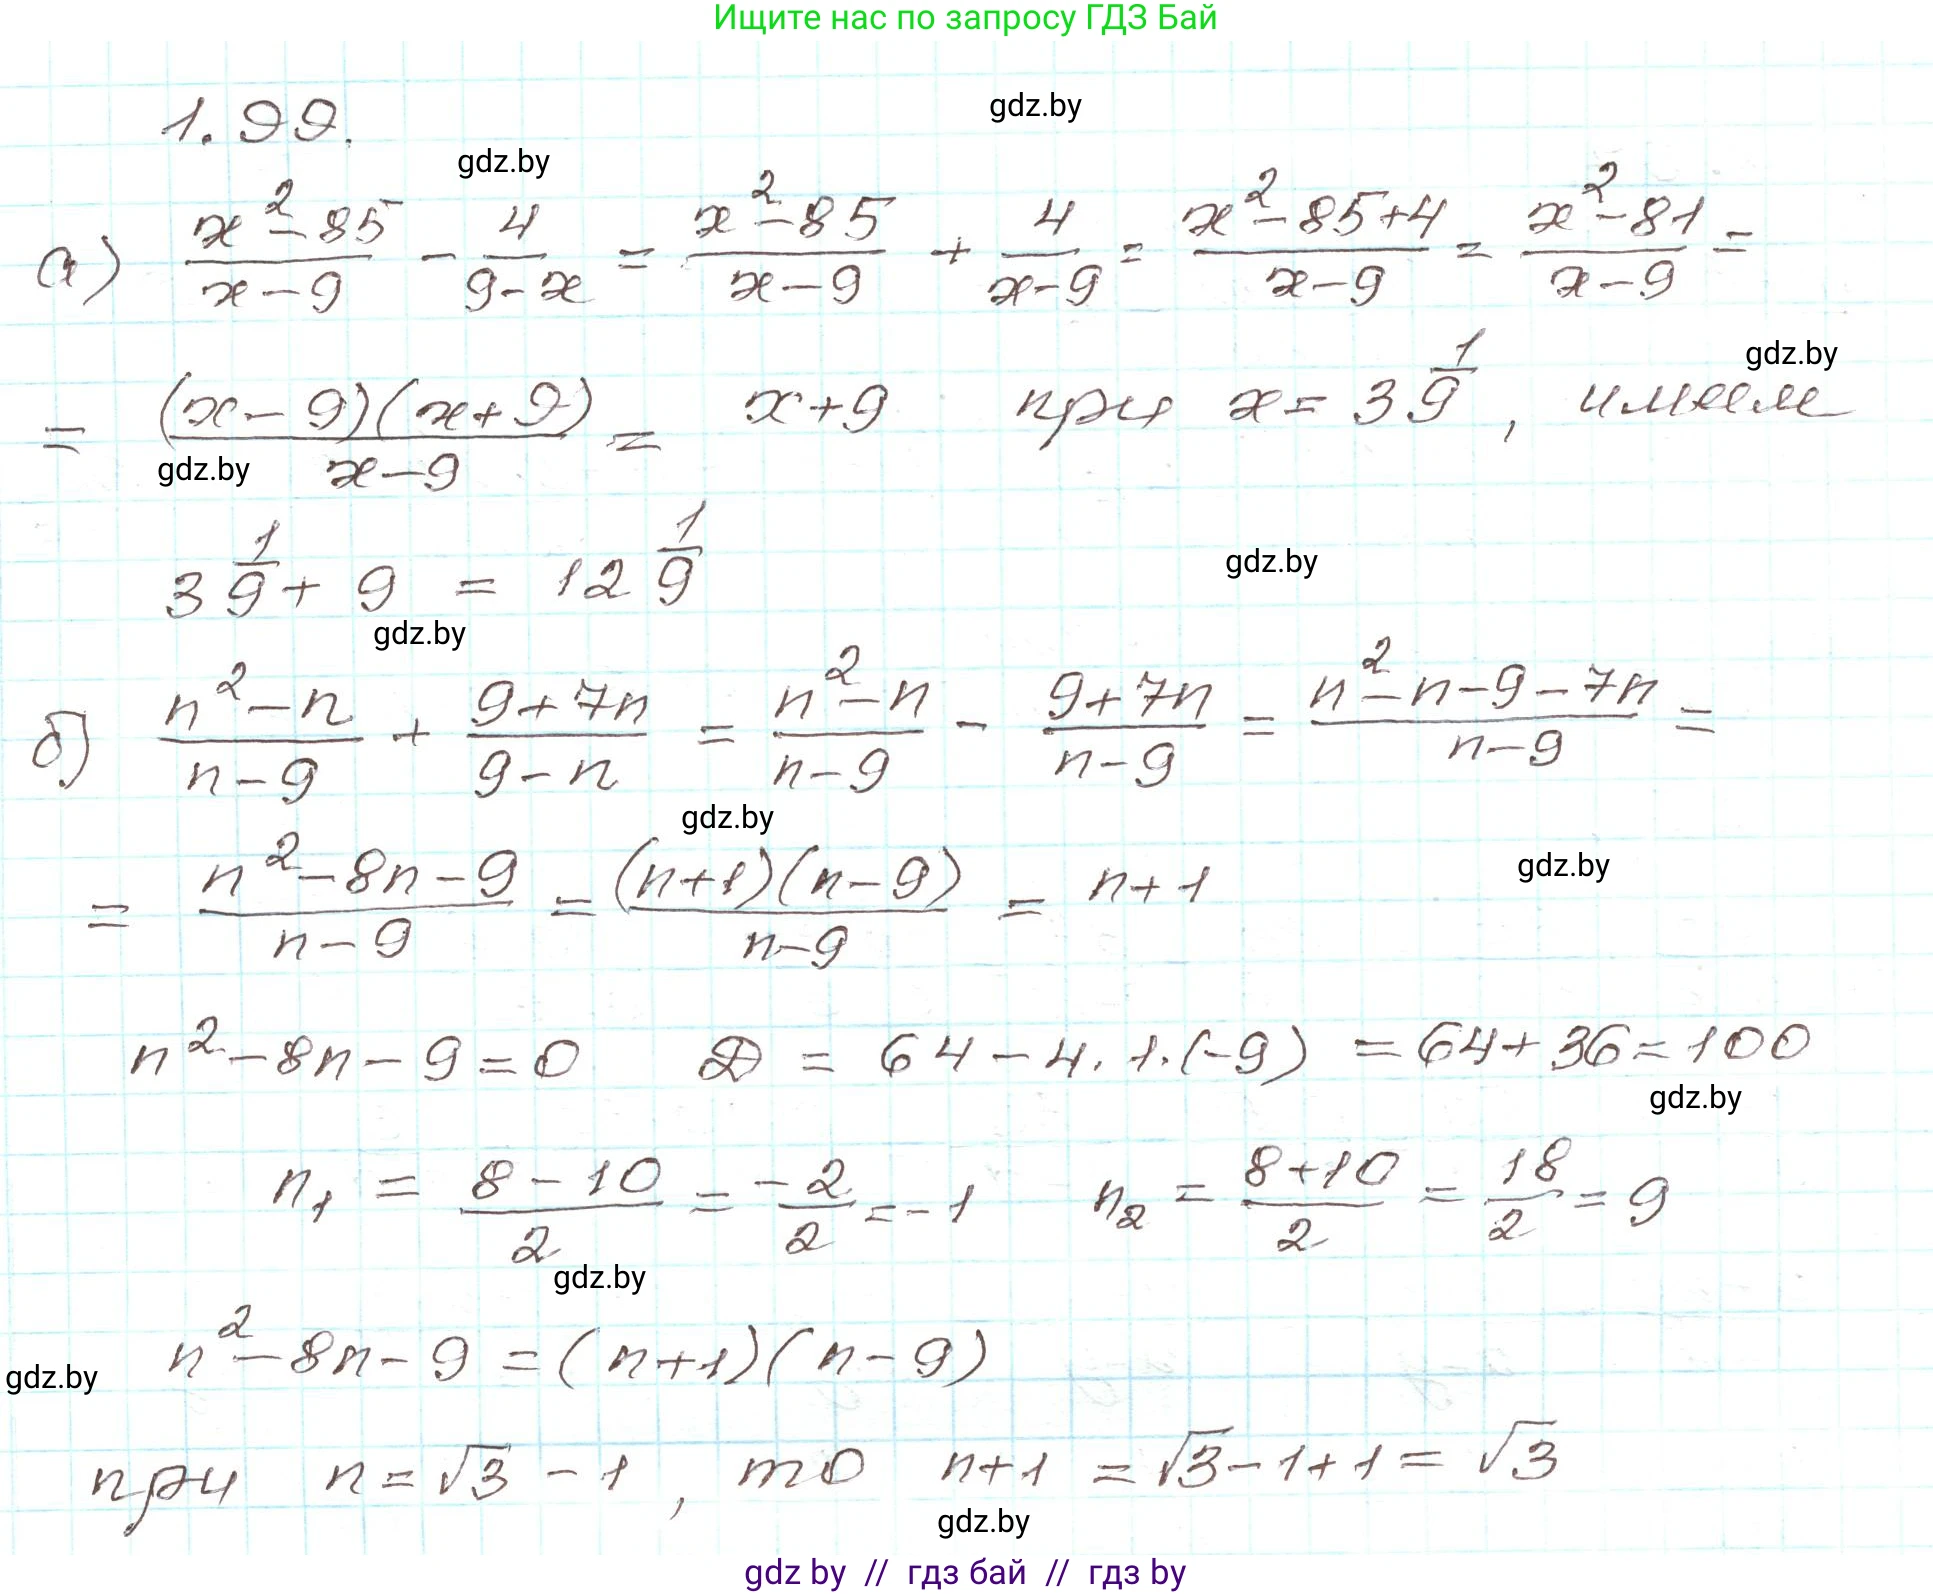 Ищите нас по запросу ГДЗ Бай
gdz.by
1.99.
gdz.by
а) (x² - 85)/(x - 9) - 4/(9 - x) = (x² - 85)/(x - 9) + 4/(x - 9) = (x² - 85 + 4)/(x - 9) = (x² - 81)/(x - 9) =
gdz.by
= ((x - 9)(x + 9))/(x - 9) = x + 9 при x = 3 1/9, имеем
gdz.by
3 1/9 + 9 = 12 1/9
gdz.by
gdz.by
б) (n² - n)/(n - 9) + (9 + 7n)/(9 - n) = (n² - n)/(n - 9) - (9 + 7n)/(n - 9) = (n² - n - 9 - 7n)/(n - 9) =
gdz.by
= (n² - 8n - 9)/(n - 9) = ((n + 1)(n - 9))/(n - 9) = n + 1
gdz.by
n² - 8n - 9 = 0 D = 64 - 4 · 1 · (-9) = 64 + 36 = 100
gdz.by
n₁ = (8 - 10)/2 = -2/2 = -1 n₂ = (8 + 10)/2 = 18/2 = 9
gdz.by
n² - 8n - 9 = (n + 1)(n - 9)
gdz.by
при n = √3 - 1, то n + 1 = √3 - 1 + 1 = √3
gdz.by
gdz by // гдз бай // гдз by